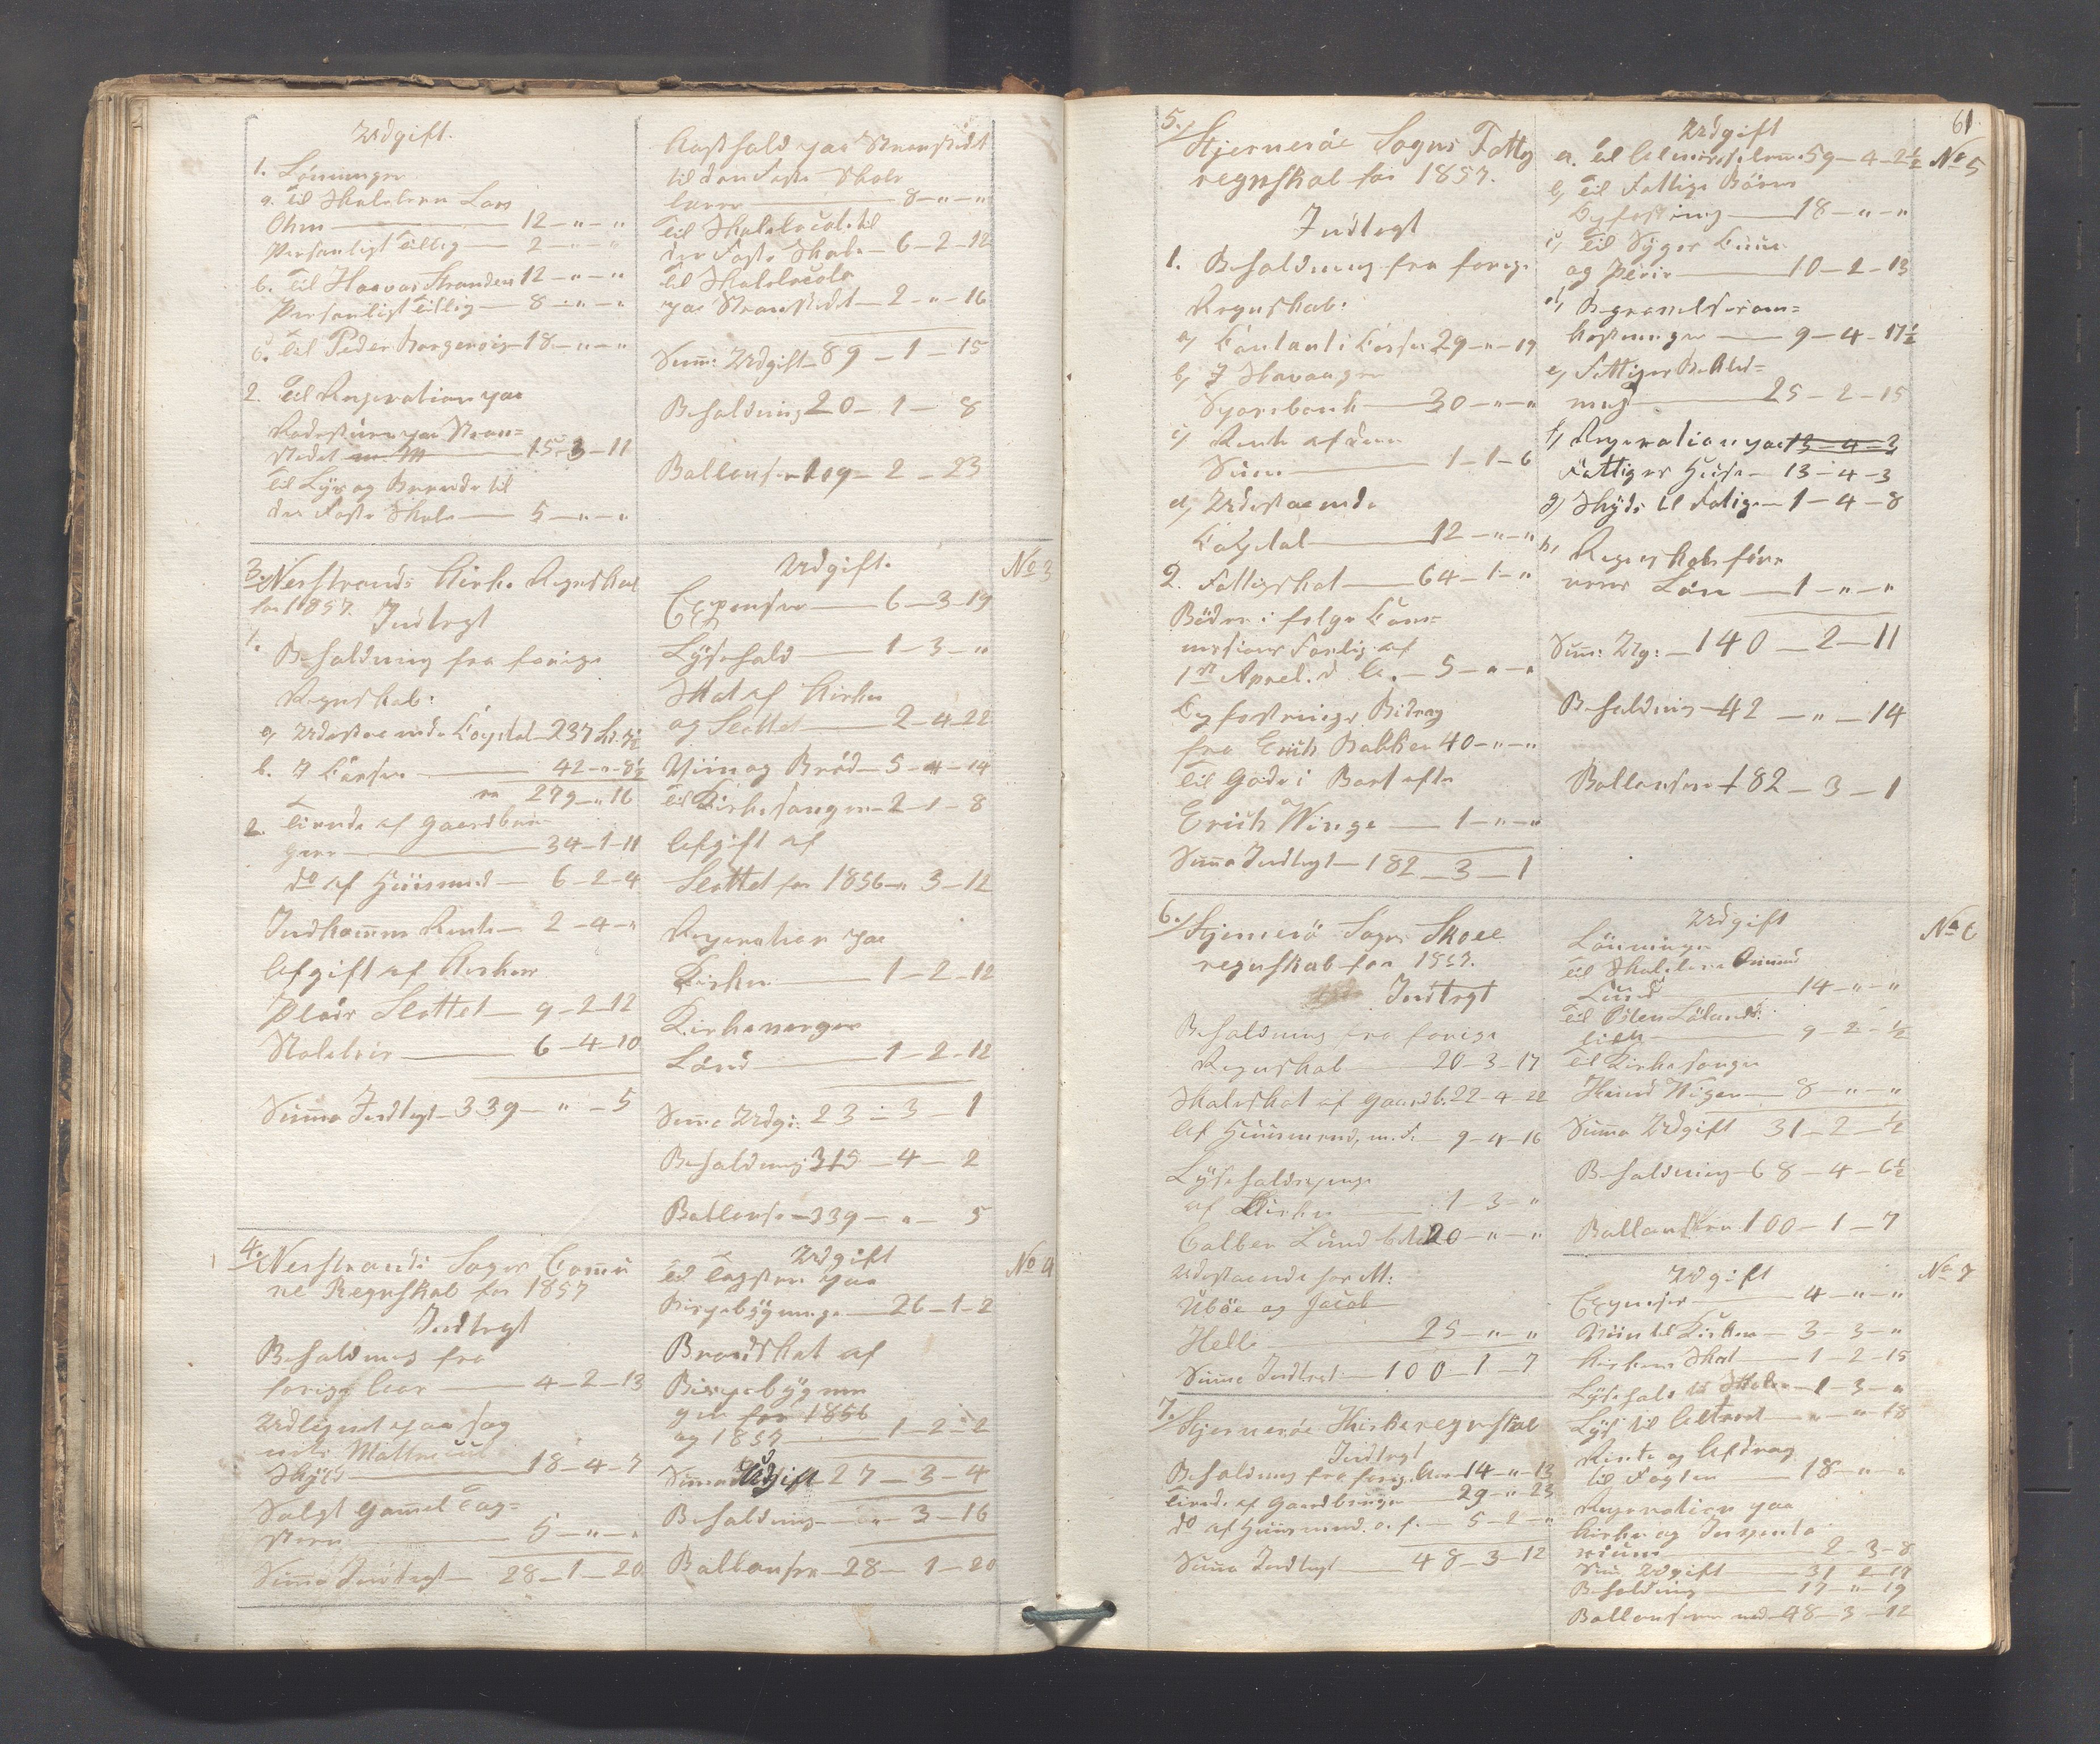 Udgift.
1. Lönninger
a. til Skolelærer Lars
Ohm — 12 — " — "
Personligt Tillæg — 2 — " — "
b. Til Haavar Stranden 12 — " — "
Personligt Tillæg — 8 — " — "
c. til Peder Borgeröis 18 — " — "
2. Til Reperation paa
Stedet — 15 — 3 — 11
Til Lys og Brænde til
den Faste Skole — 5 — " — "
Kosthold paa
til den Faste Skole
lærer — 8 — " — "
Til Skolelocale til
den Faste Skole — 6 — 2 — 12
Til Skolelocale
paa — 2 — " — 16
Sum: Udgift 89 — 1 — 15
Beholdning 20 — 1 — 8
Ballanser 109 — 2 — 23
3. Nerstrands Kirke Regnskab
for 1857.
Indtægt
1. Beholdning fra forige
Regnskab:
a, Udestaaende Capital 237
b. I Cassen — 42 — " — 8½
279 — " 16
2. Tiende af Gaardbru-
gere — 34 — 1 — 11
do af Huusmænd — 6 — 2 — 4
Indkommen Rente — 2 — 4 — "
Afgift af Kirkens
Plads Slottet — 9 — 2 — 12
Stoleleie — 6 — 4 — 10
Summa Indtægt — 339 — " — 5
Udgift.
No 3
Expenser — 6 — 3 — 19
Lysehold — 1 — 3 — "
Skat af Kirken
og Slottet — 2 — 4 — 22
Viin og Bröd — 5 — 4 — 14
til Kirkesanger — 2 — 1 — 8
Afgift af
Slottet for 1856 — " 3 — 12
Reperation paa
Kirken — 1 — 2 — 12
Kirkeverger
Lönd — 1 — 2 — 12
Summa Udgi: 23 — 3 — 1
Beholdning 315 — 4 — 2
Ballanse — 339 — " — 5
4. Nerstrands Sogns Comu
ne Regnskab for 1857
Indtægt
Beholdning fra
forige Aar — 4 — 2 — 13
Udlignet paa Sog
nets Matricul
Skyld — 18 — 4 — 7
Solgt gamel Tag-
steen — 5 — " — "
Summa Indtægt — 28 — 1 — 20
Udgift
No 4
til Tagsteen paa
Bispebygninge — 26 — 1 — 2
Brandskat af
Bispebygnin
gen for 1856
og 1857 — 1 — 2 — 2
Summa Udgift 27 — 3 — 4
Beholdning — " — 3 — 16
Ballanser — 28 — 1 — 20
61
5. Hjernerøe Sogns Fattig
regnskab for 1857.
Indtægt
1. Beholdning fra forige
Regnskab:
a, Contant i Cassen 29 — " — 19
b, I Stavanger
Sparebank — 30 — " — "
c, Rente af den
Sum — 1 — 1 — 6
d, Udestaaende
Capital — 12 — " — "
2. Fattigskat — 64 — 1 — "
Böder i følge Com-
missions Forlig af
1st April d. A. — 5 — " — "
Opfostrings Bidrag
fra Erich Bakken 40 — " — "
Til gode i Boet efter
Erich Winge — 1 — " — "
Summa Indtægt — 182 — 3 — 1
Udgift
No 5
a. til Almisselem 59 — 4 — 2½
b, til Fattige Börns
Opfostring — 18 — " — "
c, til Syges Cuur
og Pleie — 10 — 2 — 13
d, Begravelsesom-
kostninger — 9 — 4 — 17½
e, Fattiges Beklæd-
ning — 25 — 2 — 15
f, Reperation paa 13 — 4 — 3
Fattiges Huse — 13 — 4 — 3
g, Skyds til Fatige — 1 — 4 — 8
h, Regnskabsföre-
rens Lön — 1 — " — "
Sum: Udg: — 140 — 2 — 11
Beholdning — 42 — " — 14
Ballanser — 182 — 3 — 1
6. Hjernerö Sogns Skole
regnskab for 1857.
Indtægt
Beholdning fra forige
Regnskab — 20 — 3 — 17
Skoleskat af Gaardb. 22 — 4 — 22
Af Huusmænd, m. f. — 9 — 4 — 16
Lyseholdspenge
af Kirken — 1 — 3 — "
Colben Lund 20 — " — "
Udestaaende hos M:
Uböe og Jacob
Helle — 25 — " — "
Summa Indtægt — 100 — 1 — 7
Udgift
No 6
Lönninger
til Skolelærer
Lund — 14 — " — "
til
9 — 2 — ½
til Kirkesanger
8 — " — "
Summa Udgift 31 — 2 — ½
Beholdning — 68 — 4 — 6½
Ballanseren 100 — 1 — 7
7. Hjernerøe Kirkeregnskab
Indtægt
Beholdning fra forige Aar — 14 — " — 13
Tiende af Gaardbruger — 29 — " — 23
do af Huusmænd. o. f. — 5 — 2 — "
Summa Indtægt — 48 — 3 — 12
Udgift
No 7
Expenser — 4 — " — "
Viin til Kirken — 3 — 3 — "
Kirkens Skat — 1 — 2 — 15
Lysehold til Skolen — 1 — 3 — "
Lys til Alteret — " — " — 18
Rente og Afdrag
til Fogten — 18 — " — "
Reperation paa
Kirke og Inventa
rium — 2 — 3 — 8
Sum Udgift — 31 — 2 — 17
Beholdning — 17 — " — 19
Ballanseren med — 48 — 3 — 12